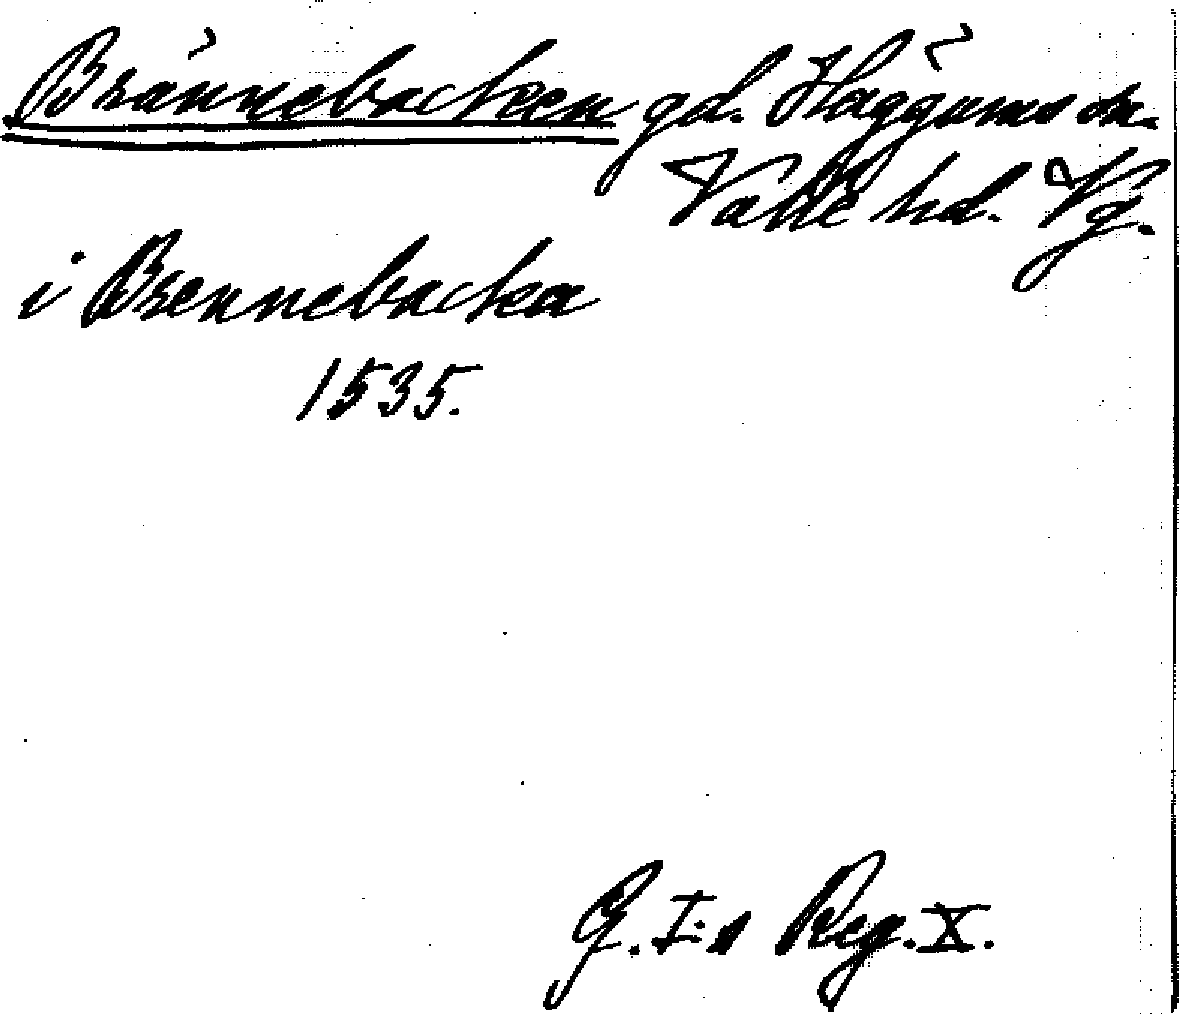 Brännebacken gd. Häggums sn.
Valle hd. Vg.
i Brennebacka
1535.
G. I:s Reg. X.